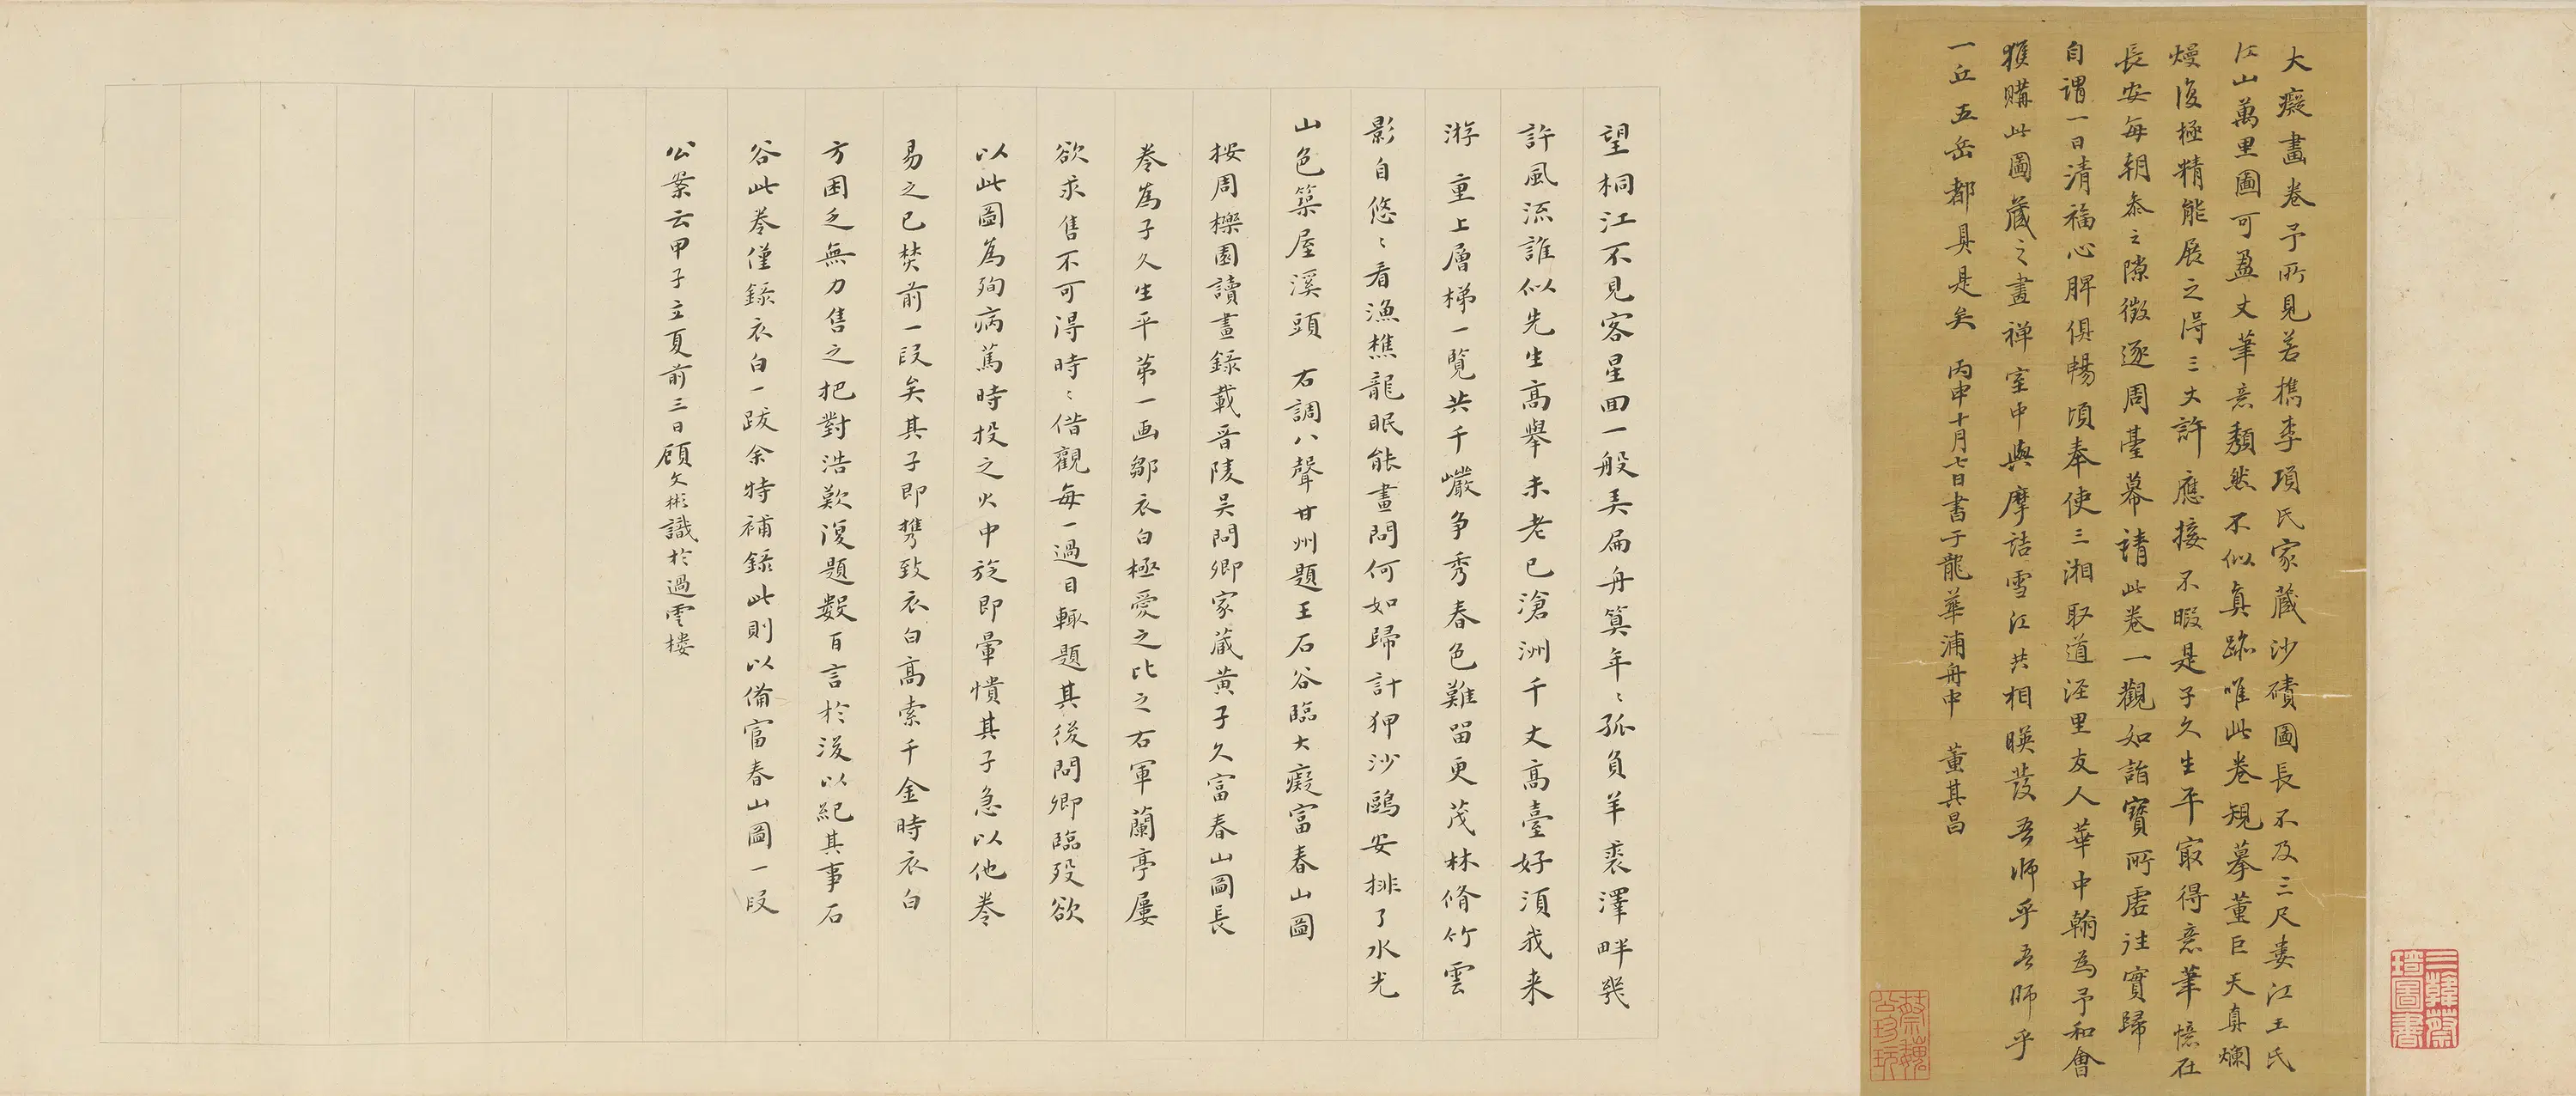 大癡畫卷予所見若檇李項氏家藏沙磧圖長不及三尺婁江王氏
江山萬里圖可盈丈筆意頹然不似真跡唯此卷規摹董巨天真爛
熳復極精能展之得三丈許應接不暇是子久生平㝡得意筆憶在
長安每朝叅之隙徵逐周臺幕請此卷一觀如詣寶所虛往實歸
自謂一日清福心脾俱暢頃奉使三湘取道涇里友人華中翰為予和會
獲購此圖藏之畫禅室中與摩詰雪江共相暎發吾师乎吾師乎
一丘五岳都具是矣 丙申十月七日書于龍華浦舟中 董其昌
三韓蔡
琦圖書
蔡魏
公珍玩
望桐江不見客星回一般弄扁舟算年〻孤負羊裘澤畔幾
許風流誰似先生高舉未老已滄洲千丈高臺好須我来
游 重上層梯一覧共千巖争秀春色難留更茂林脩竹雲
影自悠〻看漁樵龍眠能畫問何如歸計狎沙鷗安排了水光
山色築屋溪頭 右調八聲甘州題王石谷臨大癡富春山圖
按周櫟園讀畫錄載晋陵吴問卿家蔵黄子久富春山圖長
卷爲子久生平第一画鄒衣白極愛之比之右軍蘭亭屢
欲求售不可得時〻借觀每一過目輙題其後問卿臨歿欲
以此圖爲殉病篤時投之火中旋即暈憒其子急以他卷
易之已焚前一段矣其子即攜致衣白高索千金時衣白
方困乏無力售之把對浩歎復題數百言於後以紀其事石
谷此卷僅錄衣白一跋余特補錄此則以備富春山圖一段
公案云甲子立夏前三日顧文彬識於過雲樓